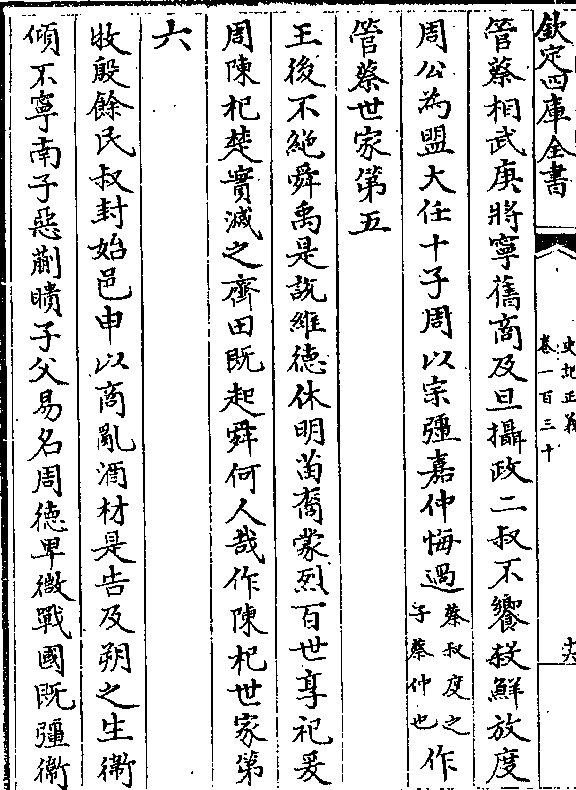 欽定四庫全書
史記正義
卷一百三十
六
管蔡相武庚將寧舊商及旦攝政二叔不饗殺鮮放度
周公為盟大任十子周以宗彊嘉仲悔過蔡叔度之子蔡仲也作
管蔡世家第五
王後不絶舜禹是説維德休明苗裔蒙烈百世享祀爰
周陳杞楚實滅之齊田既起舜何人哉作陳杞世家第
六
牧殷餘民叔封始邑申以商亂酒材是告及朔之生衛
傾不寧南子惡蒯聵子父易名周德卑微戰國既彊衛